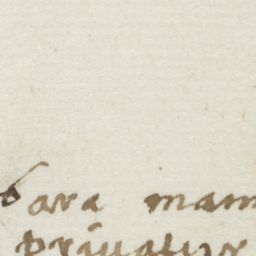 bara mam
priuatur